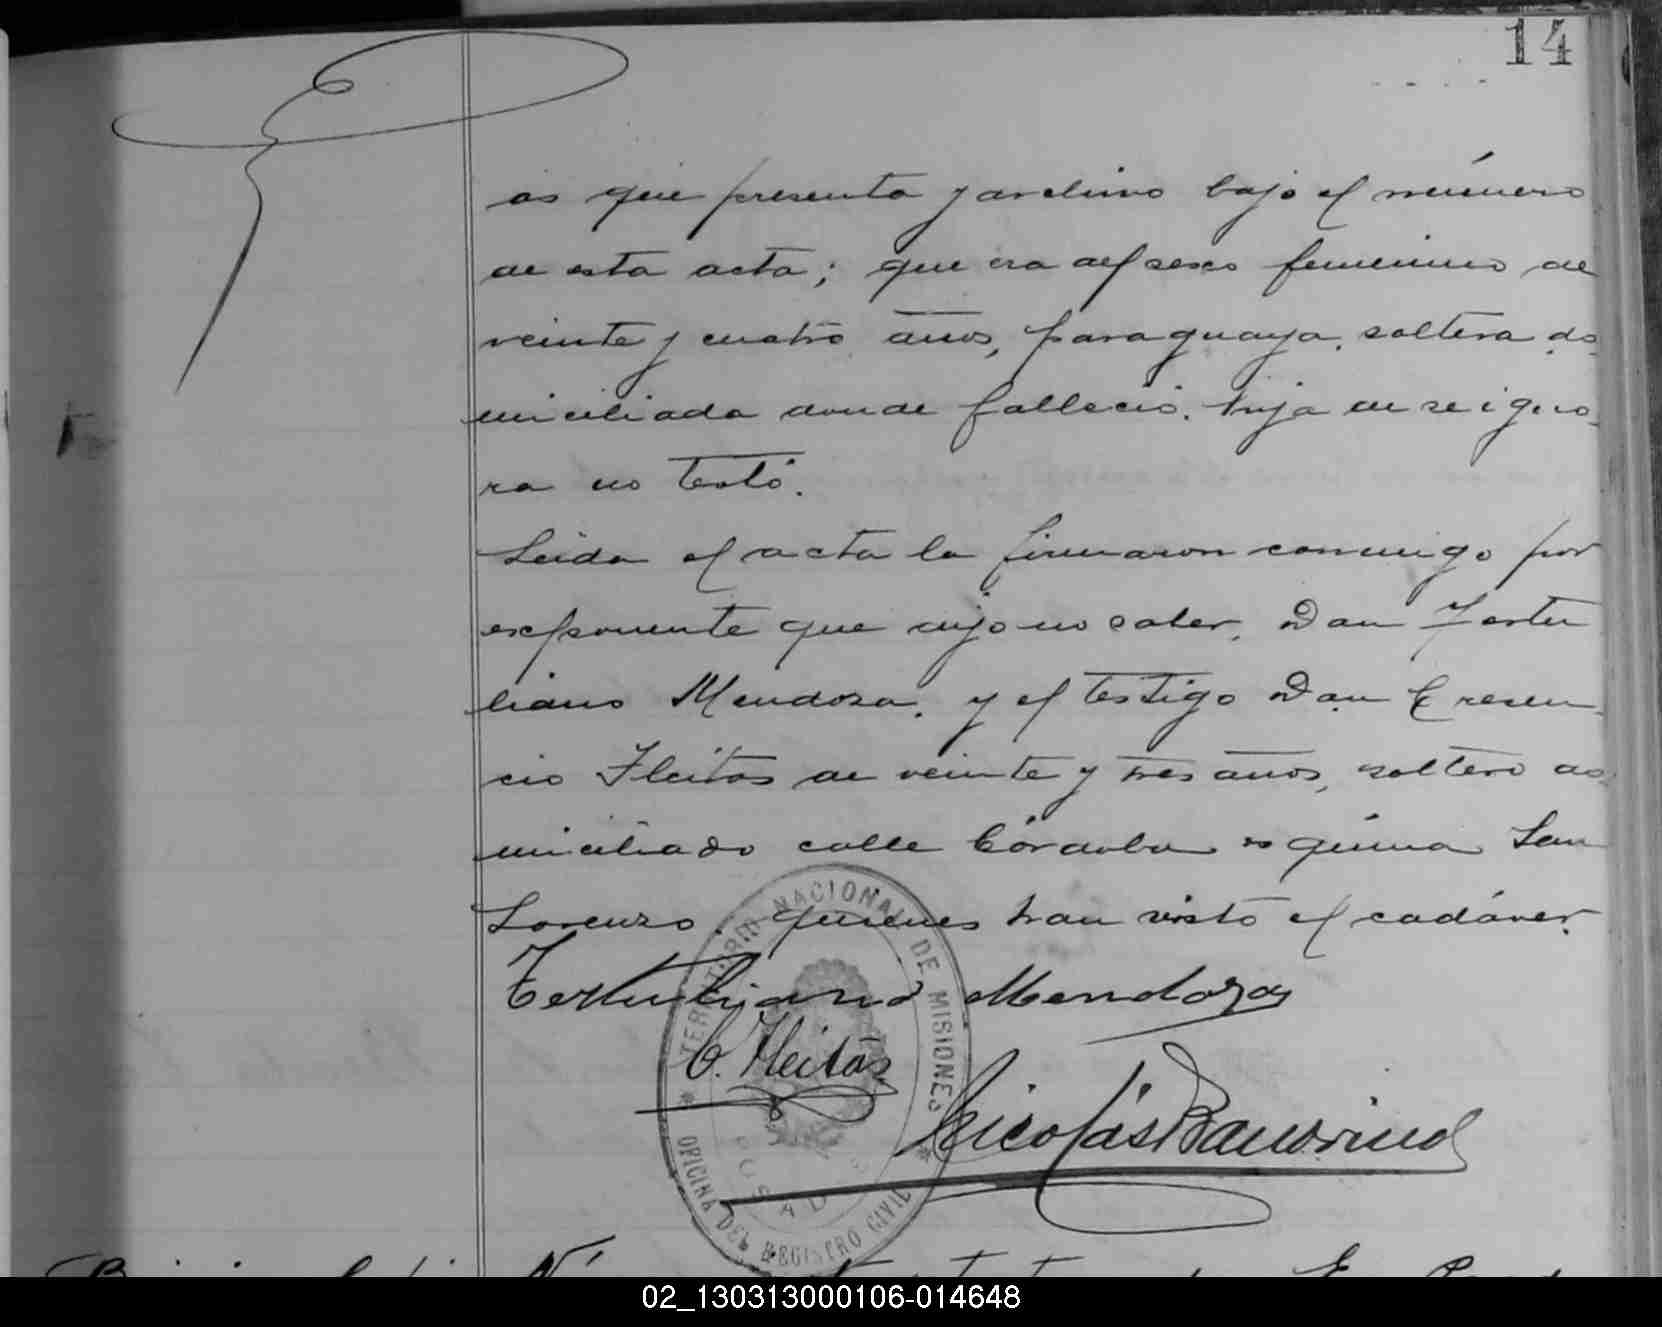 14
as que presenta y archivo bajo el número
de esta acta; que era del sexo femenino de
veinte y cuatro años, paraguaya, soltera do
miciliada donde falleció, hija de se igno
ra no testó.
Leida el acta la firmaron conmigo por
exponente que dijo no saber, Don Tertu
liano Mendoza, y el testigo Don Cresen
cio Fleitas de veinte y tres años, soltero do
miciliado calle Córdoba esquina San
Lorenzo, quienes han visto el cadáver.
Tertuliano Mendoza
C. Fleitas
Nicolás
TERRITORIO NACIONAL DE MISIONES
POSADAS
OFICINA DEL REGISTRO CIVIL
02_130313000106-014648